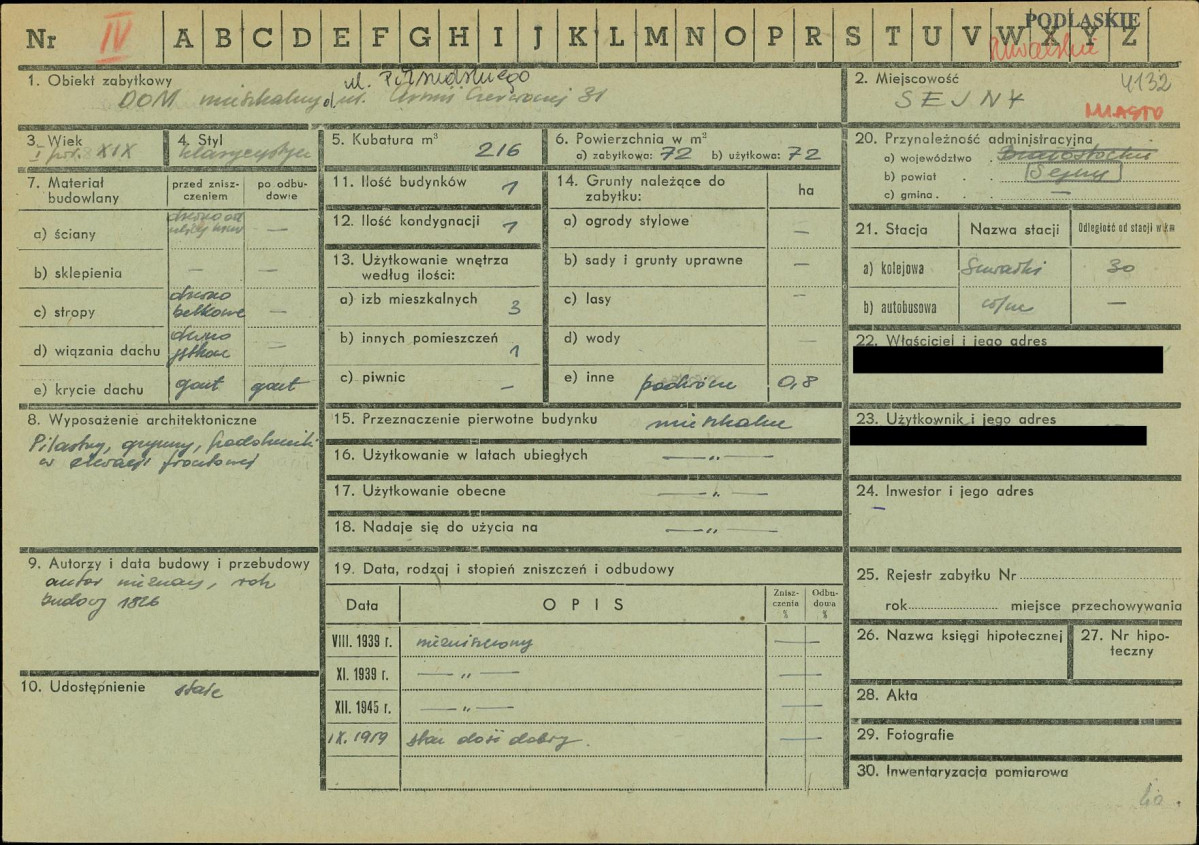 Nr IV A B C D E F G H I J K L M N O P R S T U V W X Y Z
PODLASKIE
1. Obiekt zabytkowy ul. Piłsudskiego
DOM mieszkalny d. ul. Armii Czerwonej 31
2. Miejscowość 4132
SEJNY
MIASTO
3. Wiek
I poł. XIX
4. Styl
klasycystyczn
5. Kubatura m³ 216
6. Powierzchnia w m²
a) zabytkowa: 72 b) użytkowa: 72
7. Materiał budowlany
przed zniszczeniem
po odbudowie
a) ściany
drewno od
—
b) sklepienia — —
c) stropy drewno
belkowe —
d) wiązania dachu drewno
—
e) krycie dachu gont gont
8. Wyposażenie architektoniczne
Pilastry, gzymsy,
w elewacji frontowej
9. Autorzy i data budowy i przebudowy
autor nieznany, rok
budowy 1826
10. Udostępnienie stałe
11. Ilość budynków 1
12. Ilość kondygnacji 1
13. Użytkowanie wnętrza
według ilości:
a) izb mieszkalnych 3
b) innych pomieszczeń 1
c) piwnic —
14. Grunty należące do
zabytku:
ha
a) ogrody stylowe —
b) sady i grunty uprawne —
c) lasy —
d) wody —
e) inne podwórze 0,8
15. Przeznaczenie pierwotne budynku mieszkalne
16. Użytkowanie w latach ubiegłych — „ —
17. Użytkowanie obecne — „ —
18. Nadaje się do użycia na — „ —
19. Data, rodzaj i stopień zniszczeń i odbudowy
Data OPIS Zniszczenia % Odbudowa %
VIII. 1939 r. niezniszczony —
XI. 1939 r. — „ — —
XII. 1945 r. — „ — —
IX. 1959 stan dość dobry. —
20. Przynależność administracyjna
a) województwo . Białostockie
b) powiat . . Sejny
c) gmina . . —
21. Stacja Nazwa stacji Odległość od stacji w km
a) kolejowa Suwałki 30
b) autobusowa w/m —
22. Właściciel i jego adres
23. Użytkownik i jego adres
24. Inwestor i jego adres
—
25. Rejestr zabytku Nr
rok miejsce przechowywania
26. Nazwa księgi hipotecznej
27. Nr hipoteczny
28. Akta
29. Fotografie
30. Inwentaryzacja pomiarowa